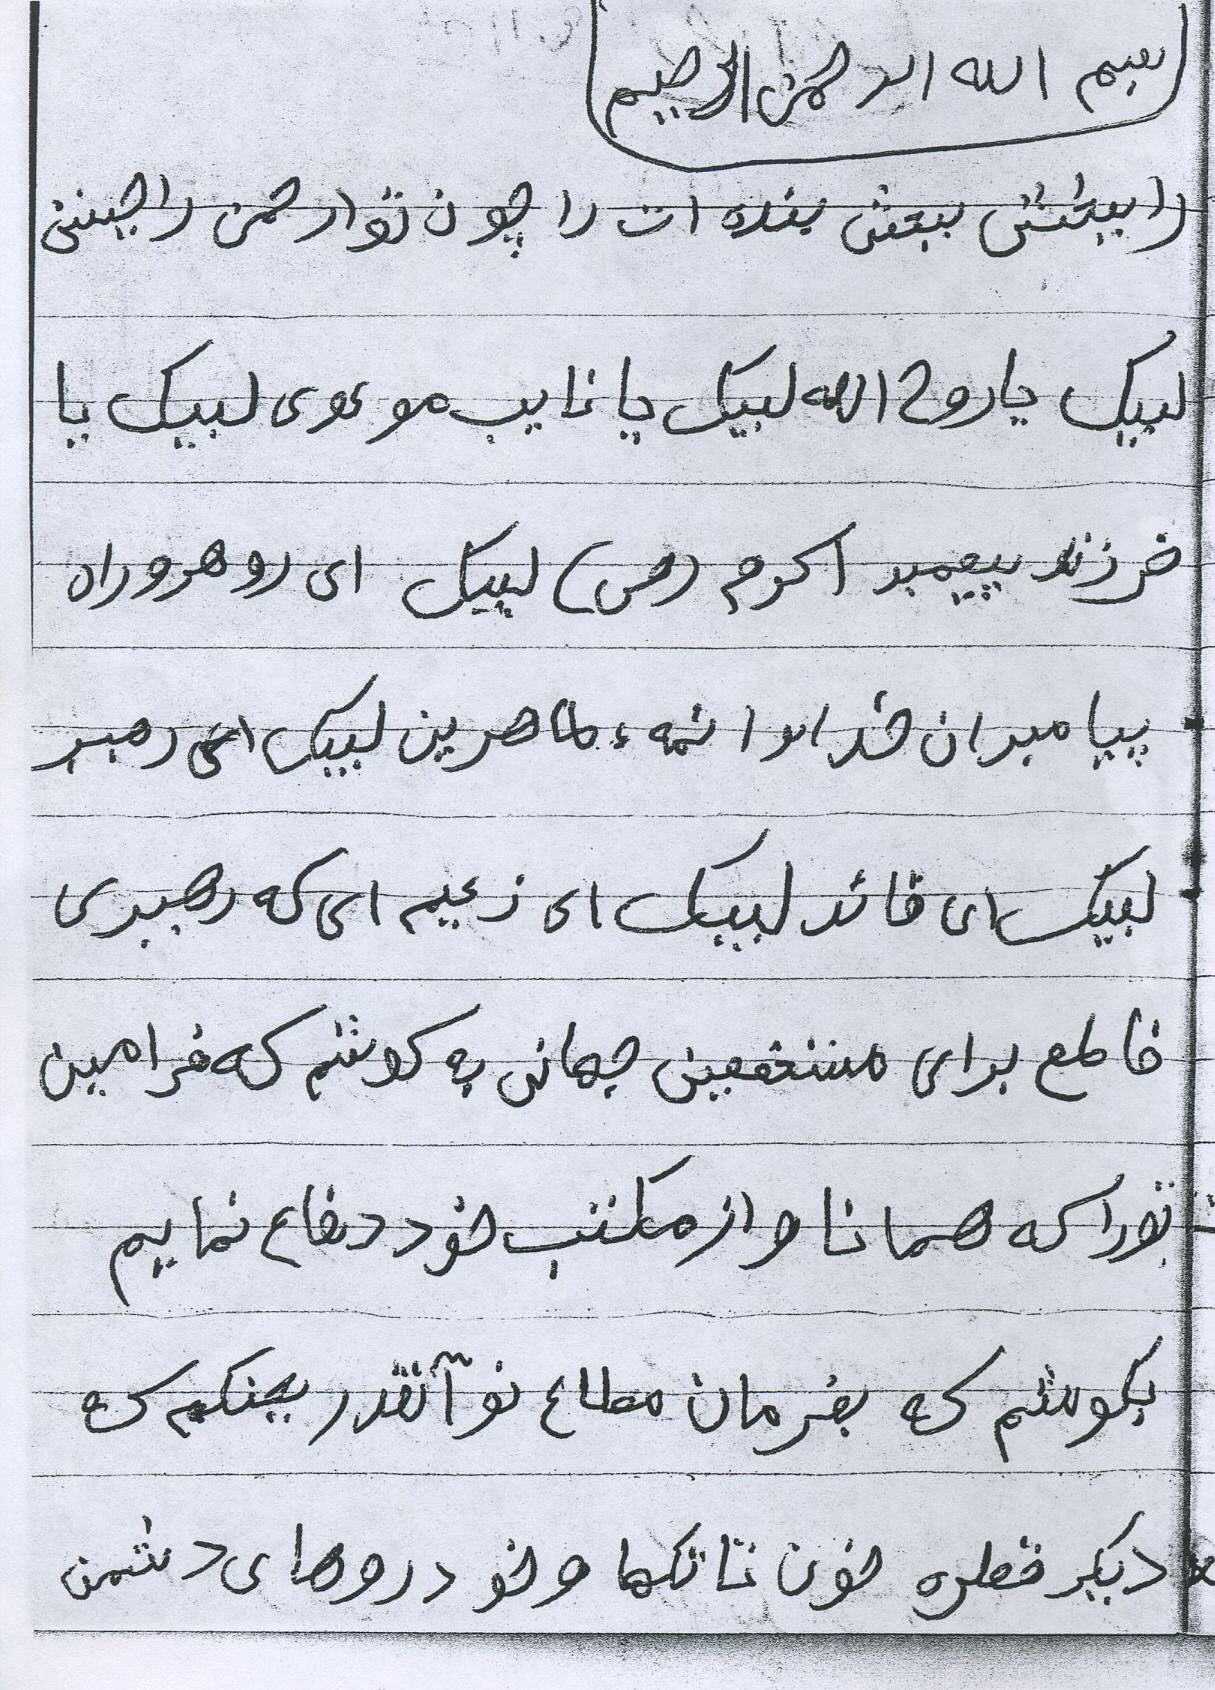 بسم الله الرحمن الرحیم
را ببخشی ببخش بنده ات را چون تو ارحمن راحمینی
لبیک یا روح الله لبیک یا نایب موسوی لبیک یا
فرزند پیغمبر اکرم (ص) لبیک ای روهرو راه
پیامبران خدا و ائمهء طاهرین لبیک ای رهبر
لبیک ای قائد لبیک ای زعیم ای که رهبری
قاطع برای مستضعفین جهانی به کوشم که فرامین
تورا که همانا از مکتب خود دفاع نماییم
بکوشم که بفرمان مطاع تو آنقدر بجنگیم که
دیگر قطره خون تا تانکها و خودروهای دشمن